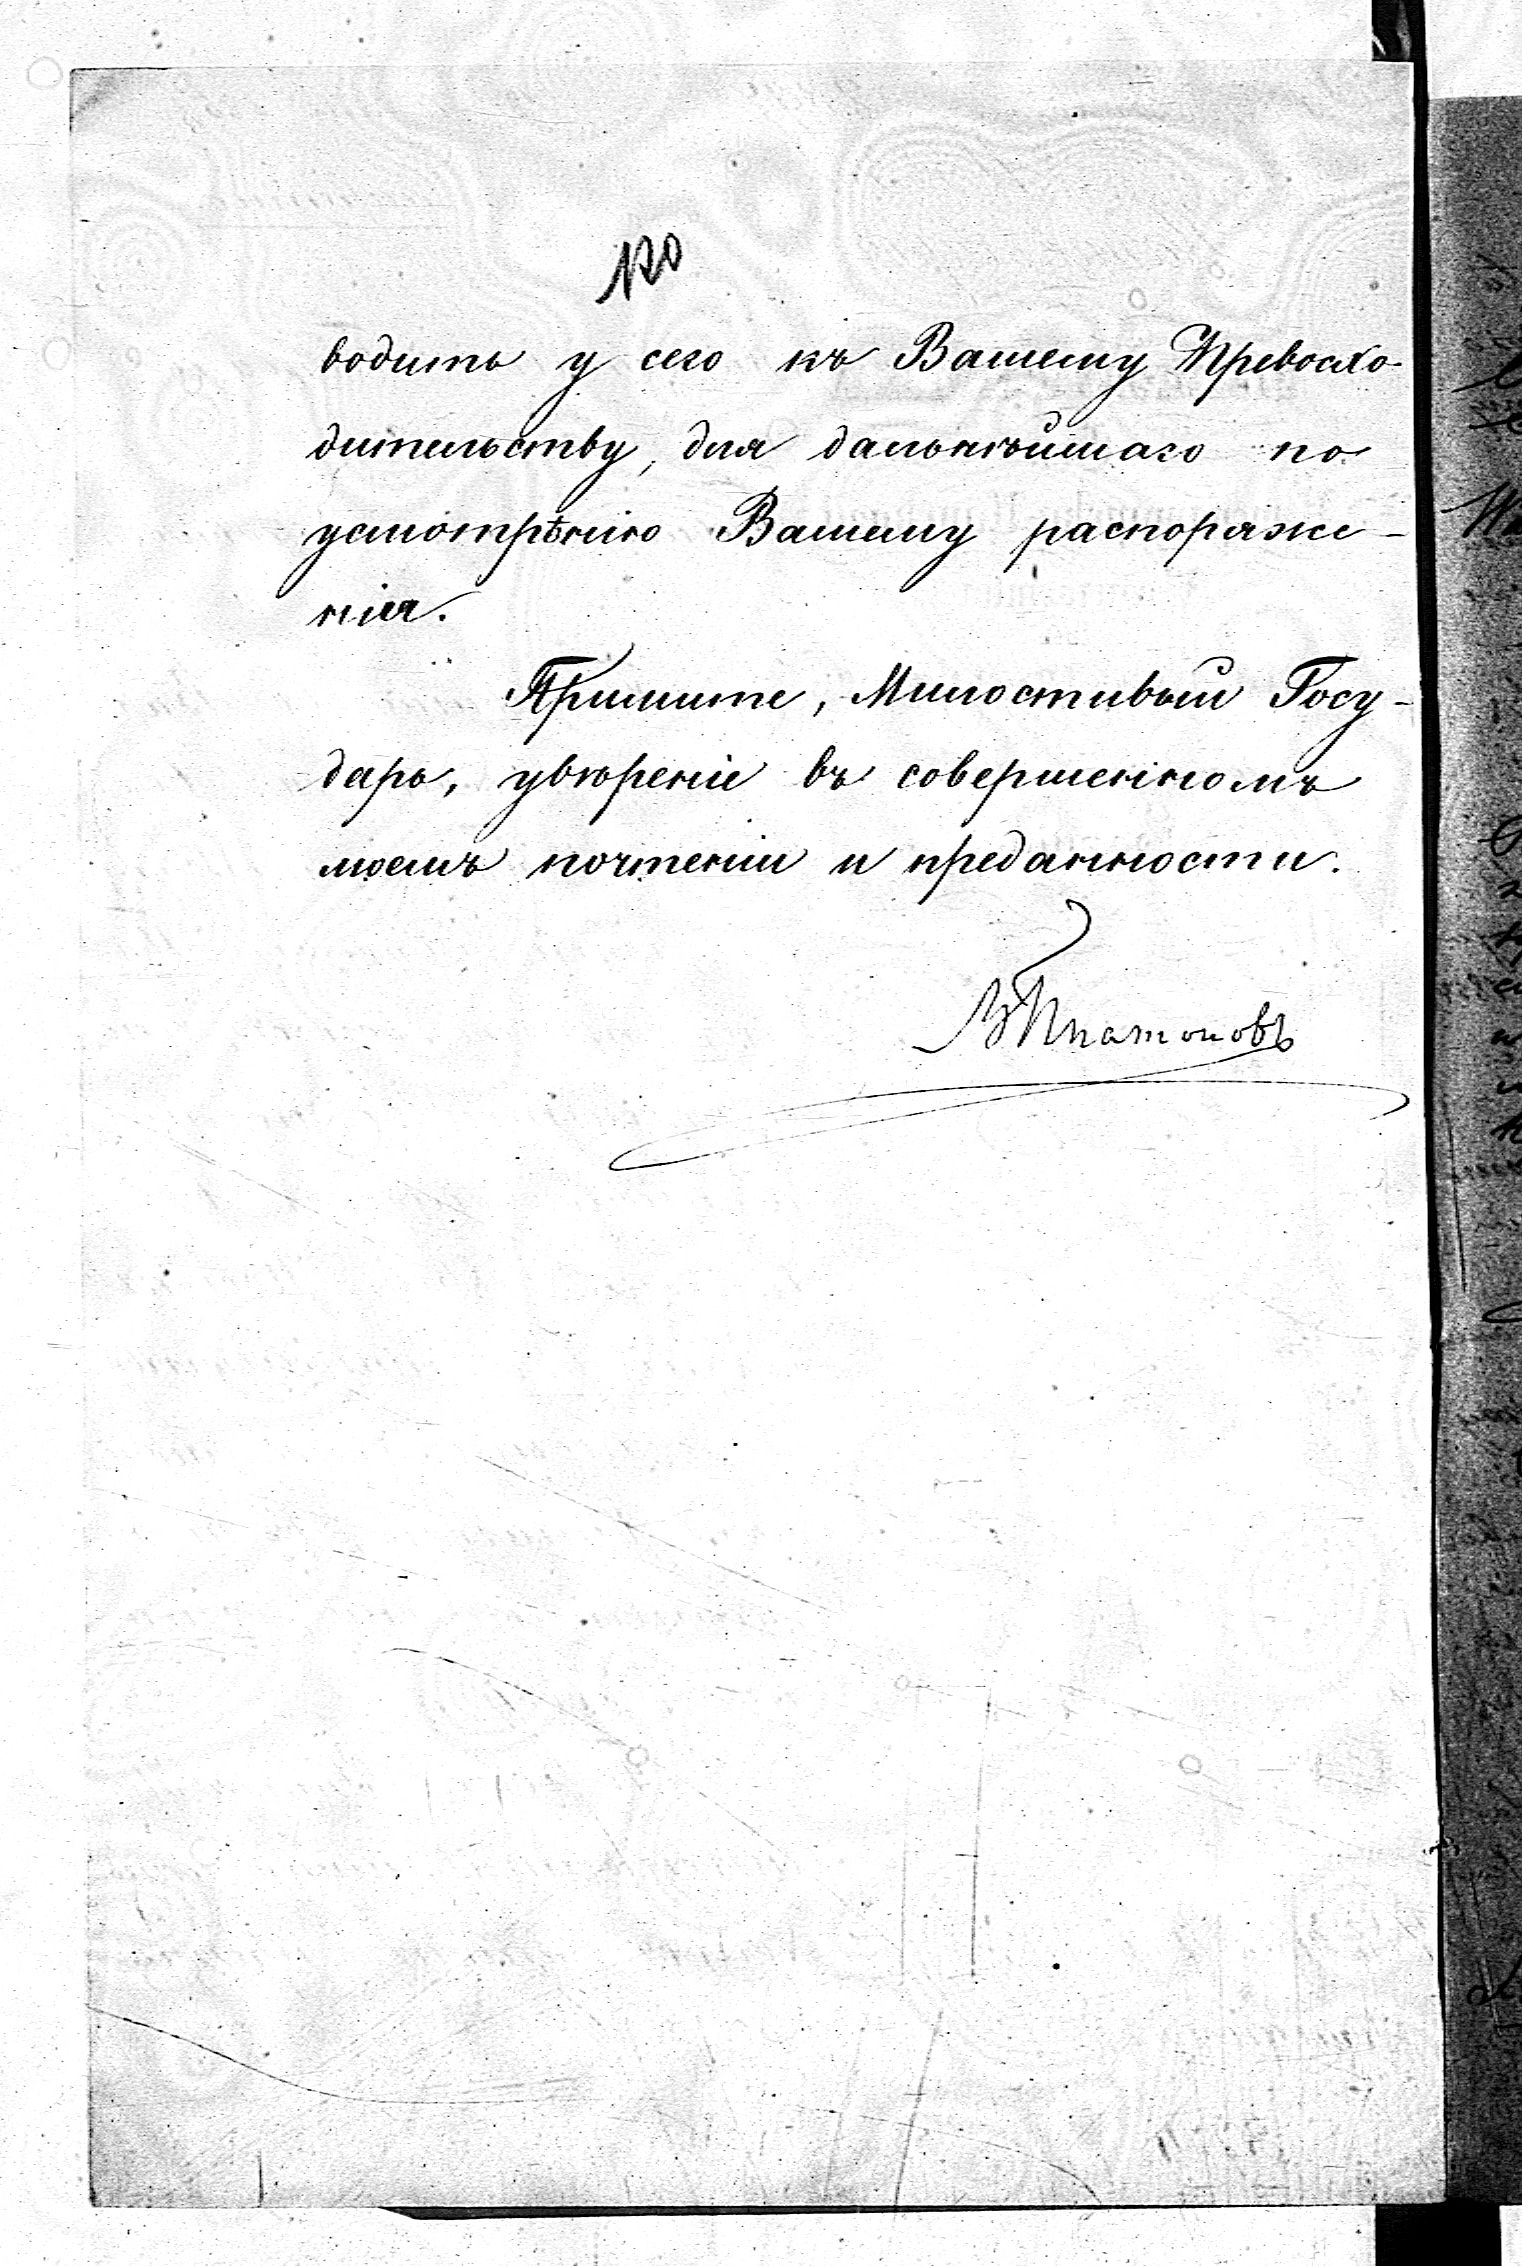 120
водить у сего къ Вашему Превосхо-
дительству, для дальнѣйшаго по
усмотрѣнію Вашему распоряже-
нія.
Примите, Милостивый Госу-
дарь, увѣреніе въ совершенномъ
моемъ почтеніи и преданности.
В Платоновъ